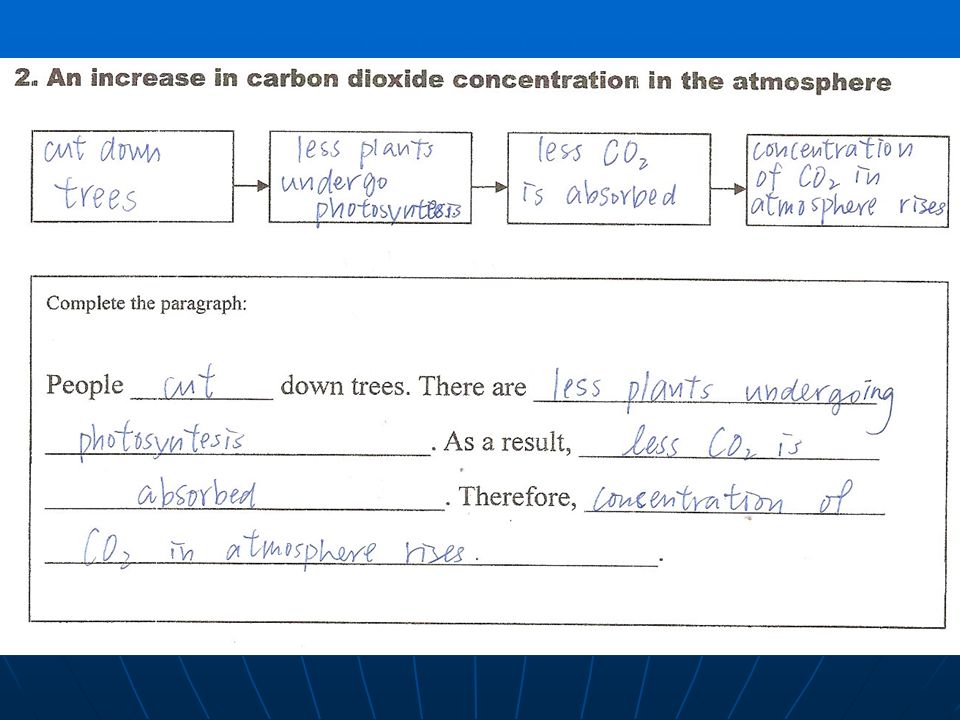 2. An increase in carbon dioxide concentration in the atmosphere
cut down
trees
less plants
undergo
photosyntesis
less CO₂
is absorbed
concentration
of CO₂ in
atmosphere rises
Complete the paragraph:
People cut down trees. There are less plants undergoing
photosyntesis. As a result, less CO₂ is
absorbed. Therefore, concentration of
CO₂ in atmosphere rises. .